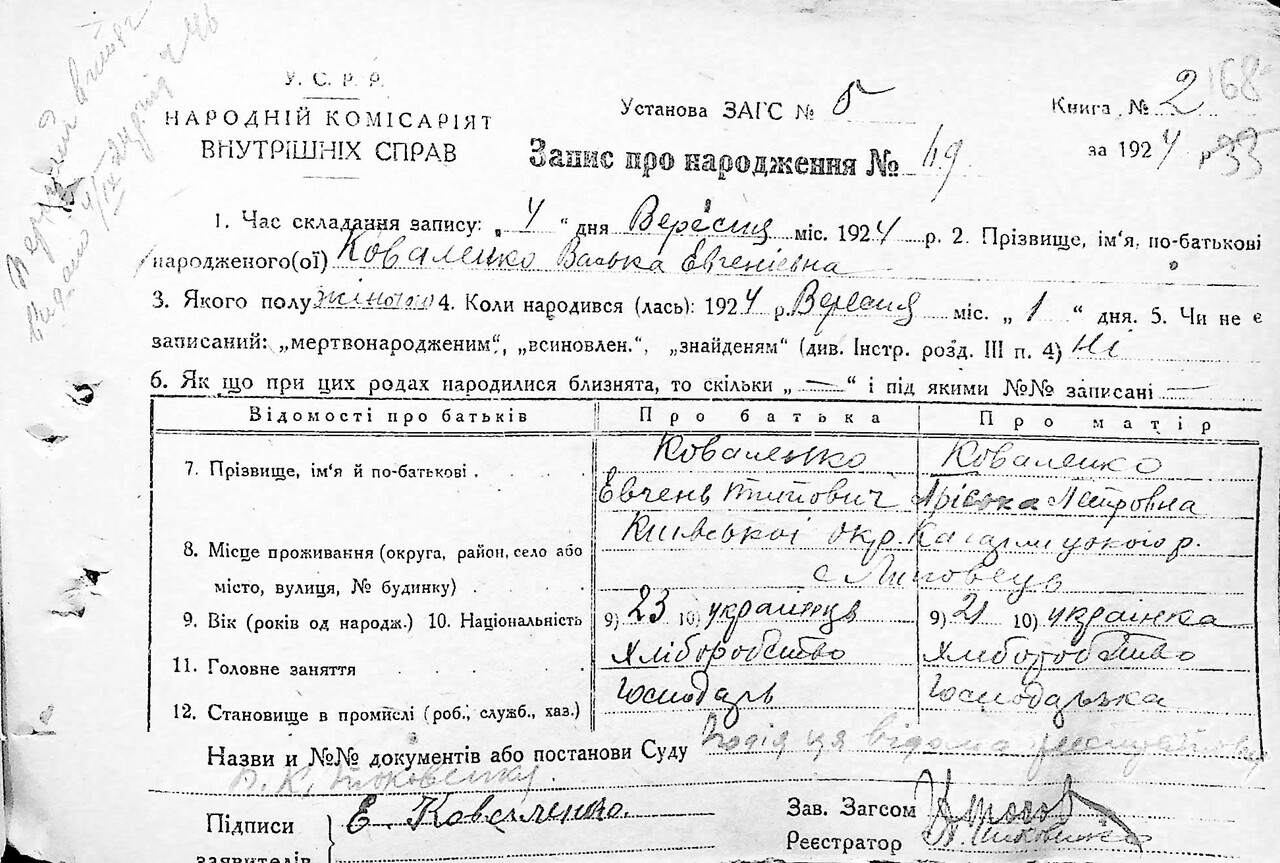 У. С. Р. Р.
НАРОДНІЙ КОМІСАРІЯТ
ВНУТРІШНІХ СПРАВ
Установа ЗАГС № 5
Книга № 2
168
Запис про народження № 69
за 1924 р.
33
1. Час складання запису: „4“ дня Вересня міс. 1924 р. 2. Прізвище, ім'я, по-батькові
народженого(ої) Коваленко Васька Евгеніевна
3. Якого полу жіночого 4. Коли народився (лась): 1924 р. Вересня міс. „1“ дня. 5. Чи не є
записаний: „мертвонародженим“, „всиновлен.“, „знайденям“ (див. Інстр. розд. III п. 4) Ні
6. Як що при цих родах народилися близнята, то скільки „—“ і під якими №№ записані —
Відомості про батьків Про батька Про матір
7. Прізвище, ім'я й по-батькові Коваленко Коваленко
Евгень Петровна
8. Місце проживання (округа, район, село або Київської окр. р.
місто, вулиця, № будинку) с Липовець
9. Вік (років од народж.) 10. Національність 9) 23 10) українець 9) 21 10) українка
11. Головне заняття Хліборобство Хліборобство
12. Становище в промислі (роб., служб., хаз.) Господарь Господарька
Назви и №№ документів або постанови Суду Подія ця відома
Підписи Е. Коваленко. Зав. Загсом
заявителів Реєстратор